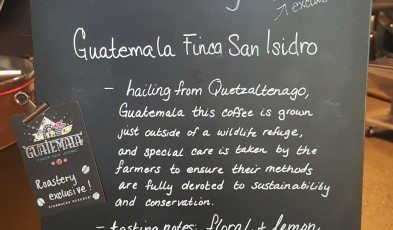 exclu
Guatemala Finca San Isidro
– hailing from Quetzaltenago,
Guatemala this coffee is grown
just outside of a wildlife refuge,
and special care is taken by the
farmers to ensure their methods
are fully devoted to sustainability
and conservation.
– tasting notes: floral + lemon,
GUATEMALA
FINCA SAN ISIDRO
Roastery
exclusive!
STARBUCKS RESERVE